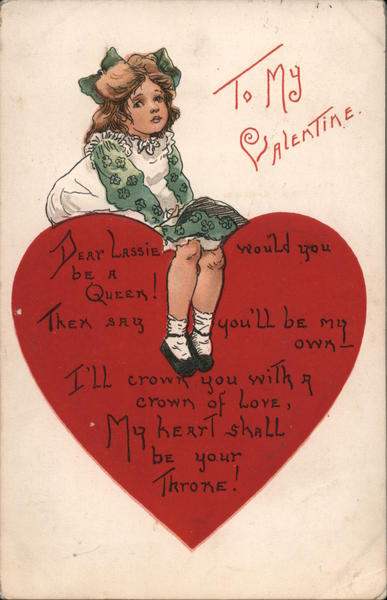 To My
Valentine.
Dear Lassie would you
be a
Queen!
Then say you'll be my
own—
I'll crown you with a
crown of Love,
My heart shall
be your
Throne!